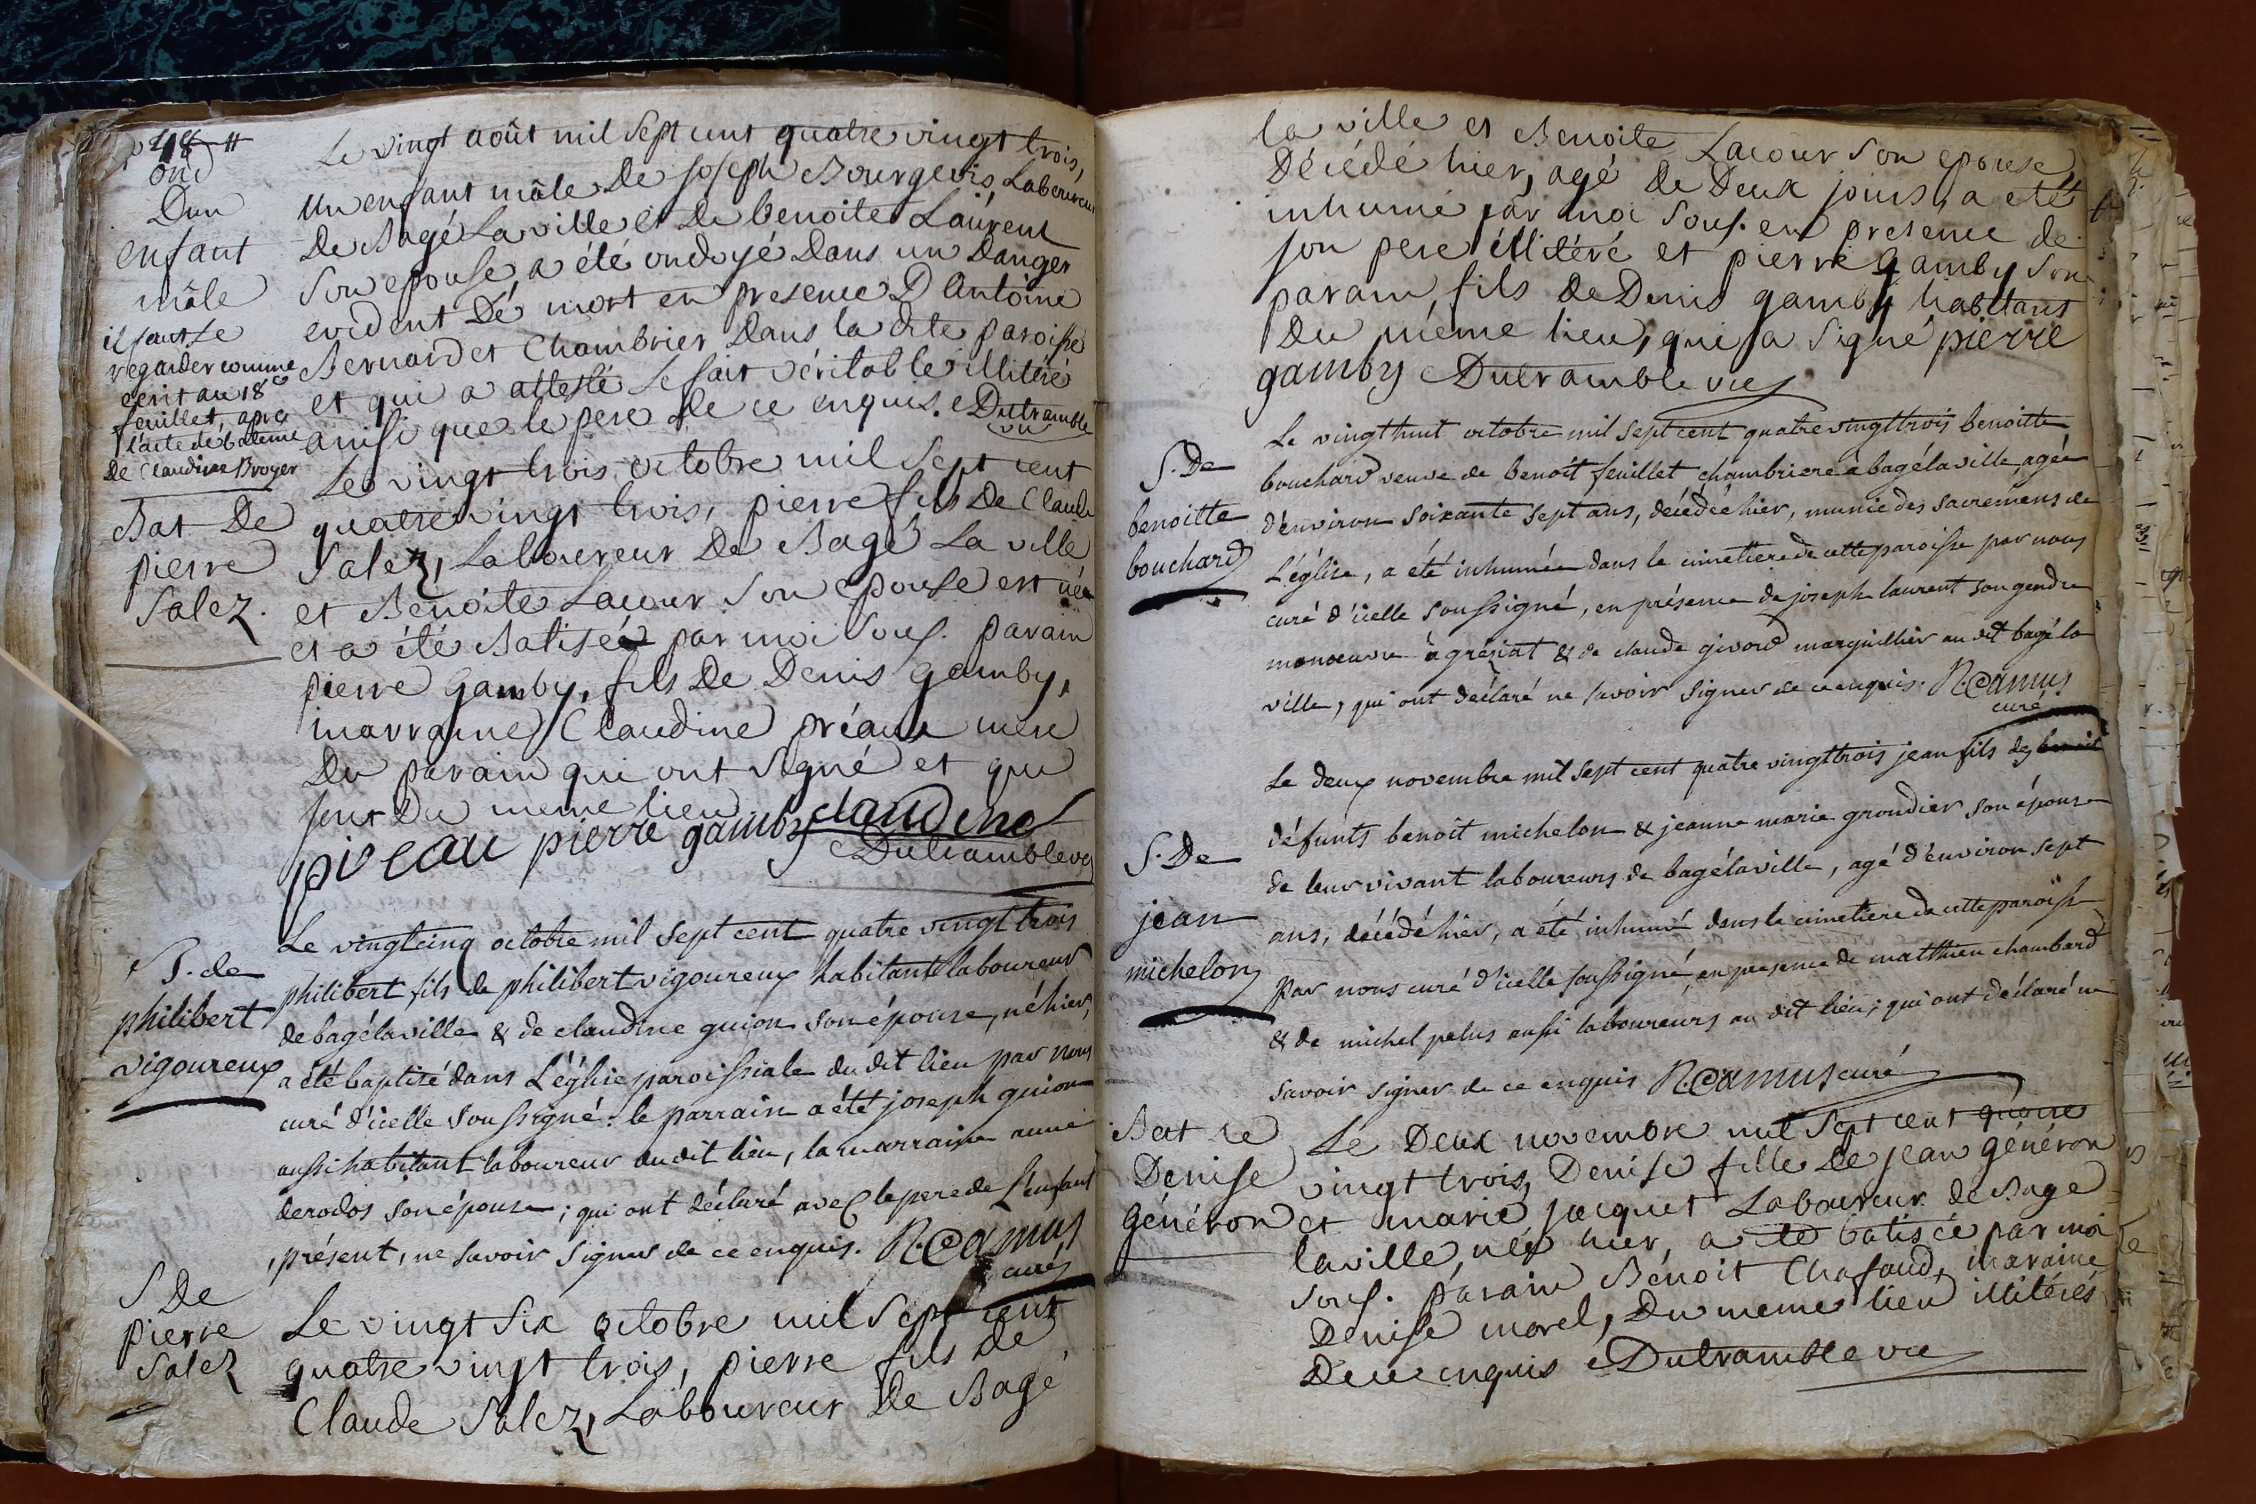 18
ond
Dun
enfant
mâle
il faut le
regarder comme
ecrit au 18e
feuillet, apres
l'acte de bateme
de Claudine Broyer
Le vingt août mil sept cent quatre vingt trois,
Un enfant mâle De joseph Bourgeois, Laboureur
De Bagé La ville et De benoite Laürent
Son epouse, a été ondoyé Dans un Danger
evident Dé mort en presence D'Antoine
Bernardet Chambrier Dans la dite paroisse
et qui a attesté le fait véritable illitéré
ainsi que le pere de ce enquis. Dutramble
vic
Bat De
pierre
Salez.
Le vingt trois octobre mil Sept cent
quatre vingt trois, pierre fils De Claude
Salez, Laboureur De Bagé La ville
et Benoite Lacour Son epouse est né
et a été Batisé par moi Sous. parain
pierre Gamby, fils De Denis gamby,
marraine Claudine préaux mere
Du parain qui ont Signé et qui
sont Du meme lieu
claudine
piveau pierre gamby
Dutramblevic
S. de
philibert
vigoureux
Le vingtcinq octobre mil sept cent quatre vingt trois
philibert fils de philibert vigoureux habitant laboureur
de bagélaville & de claudine guion son épouse, né hier,
a été baptisé dans L'églíe paroissiale du dit lieu par nous
curé d'icelle soussigné: le parrain a été joseph guion
aussi habitant laboureur audit lieu, la marraine anne
derodos son épouse; qui ont déclaré avec le pere de L'enfant
présent, ne savoir signer de ce enquis. R. Camus
curé
S De
pierre
Salez
Le vingt Six octobre mil Sept cent
quatre vingt trois, pierre fils de
Claude Salez, Laboureur De Bagé
la ville et Benoite Lacour Son epouse,
Décédé hier, agé De Deux jours, a eté
inhumé par moi Sous. en presence de
son pere illitéré et pierre gamby Son
parain, fils De Denis gamby habitans
Du même lieu, qui a Signé pierre
gamby Dutramble vic
S. De
benoitte
bouchard
Le vingthuit octobre mil sept cent quatre vingttrois benoitte
bouchard veuve de benoît feuillet chambriere à bagélaville, agée
d'environ soixante sept ans, décédée hier, munie des sacremens de
L'église, a été inhumée dans le cimetiere de cette paroisse par nous
curé d'icelle soussigné, en présence de joseph laurent son gendre
manoeuvre à gréziat & de claude givord marguillier au dit bagé la
ville, qui ont déclaré ne savoir signer de ce enquis. R. Camus
curé
S. De
jean
michelon
Le deux novembre mil sept cent quatre vingttrois jean fils des benoit
défunts benoît michelon & jeanne marie grondier son épouse
de leur vivant laboureurs de bagélaville, agé d'environ sept
ans, décédé hier, a été inhumé dans le cimetiere de cette paroisse
par nous curé d'icelle soussigné, en presence de matthieu chambard
& de michel pelus aussi laboureurs au dit lieu; qui ont déclaré ne
savoir signer de ce enquis R. Camus curé
Bat de
Denise
Généron
Le Deux novembre mil sept cent quatre
vingt trois, Denise fille De jean généron
et marie jacquet Laboureur de Bagé
laville, née hier, a eté batisée par moi
sous. parain Benoit Chafaud, maraine
Denise morel, Du meme lieu illitérés
De ce enquis Dutramble vic